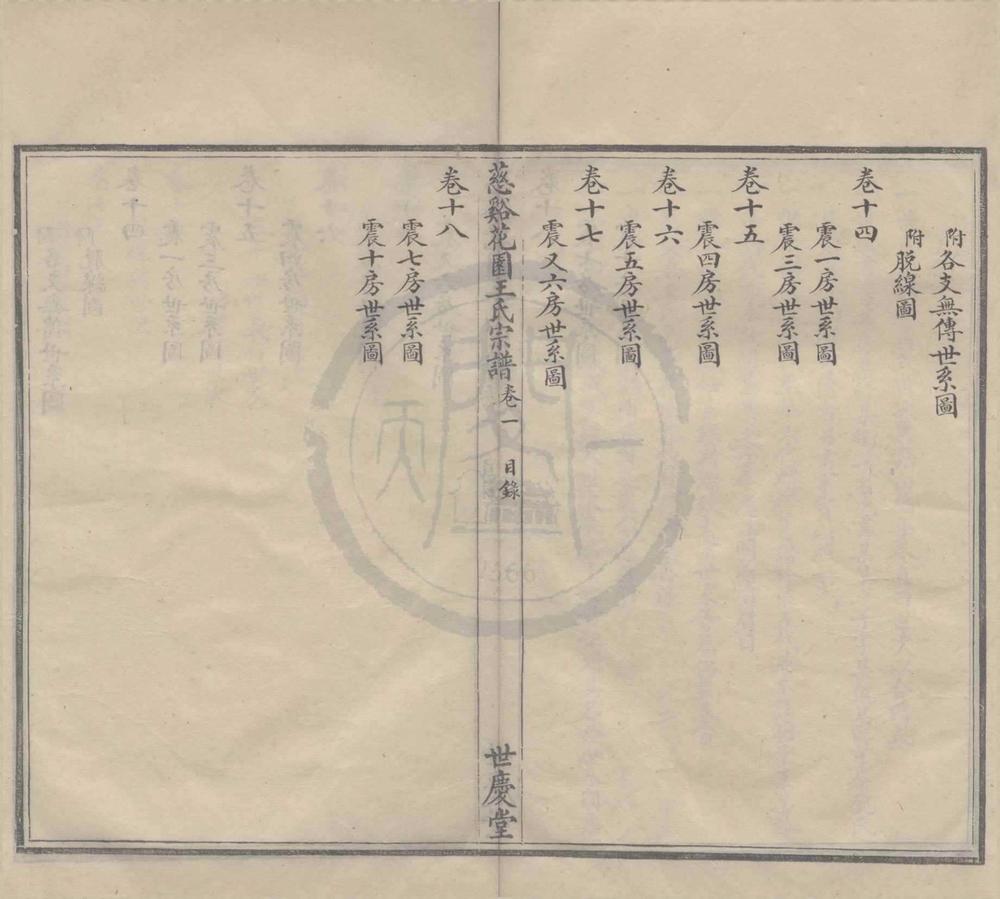 附各支無傳世系圖
附脱線圖
卷十四
震一房世系圖
震三房世系圖
卷十五
震四房世系圖
卷十六
震五房世系圖
卷十七
震又六房世系圖
慈谿花園王氏宗譜 卷一 目錄 世慶堂
卷十八
震七房世系圖
震十房世系圖